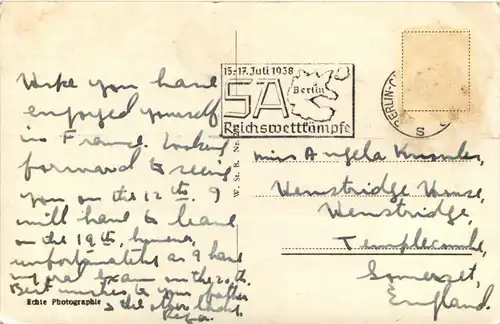 15.-17. Juli 1938
SA
Berlin
Reichswettkämpfe
BERLIN-C
S
you have
enjoyed yourself
in France. Looking
forward to seeing
you on the 12th. I
will have to leave
on the 19th, however,
unfortunately as I have
my oral Exam on the 20th.
Best wishes to your father
& the
Echte Photographie
W. St. B. Nr.
Miss Angela
Henstridge House,
Henstridge,
Templecombe,
Somerset,
England.